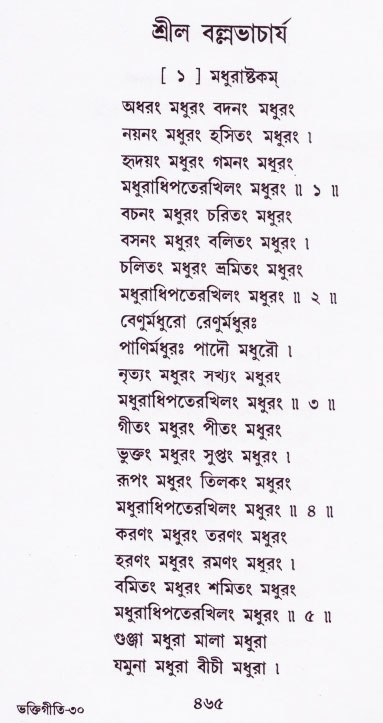 শ্রীল বল্লভাচার্য
[ ১ ] মধুরাষ্টকম্
অধরং মধুরং বদনং মধুরং
নয়নং মধুরং হসিতং মধুরং ।
হৃদয়ং মধুরং গমনং মধুরং
মধুরাধিপতেরখিলং মধুরং ॥ ১ ॥
বচনং মধুরং চরিতং মধুরং
বসনং মধুরং বলিতং মধুরং ।
চলিতং মধুরং ভ্রমিতং মধুরং
মধুরাধিপতেরখিলং মধুরং ॥ ২ ॥
বেণুর্মধুরো রেণুর্মধুরঃ
পাণির্মধুরঃ পাদৌ মধুরৌ ।
নৃত্যং মধুরং সখ্যং মধুরং
মধুরাধিপতেরখিলং মধুরং ॥ ৩ ॥
গীতং মধুরং পীতং মধুরং
ভুক্তং মধুরং সুপ্তং মধুরং ।
রূপং মধুরং তিলকং মধুরং
মধুরাধিপতেরখিলং মধুরং ॥ ৪ ॥
করণং মধুরং তরণং মধুরং
হরণং মধুরং রমণং মধুরং ।
বমিতং মধুরং শমিতং মধুরং
মধুরাধিপতেরখিলং মধুরং ॥ ৫ ॥
গুঞ্জা মধুরা মালা মধুরা
যমুনা মধুরা বীচী মধুরা ।
ভক্তিগীতি-৩০
৪৬৫